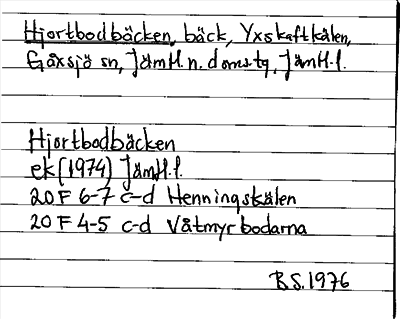 Hjortbodbäcken, bäck, Yxskaftkälen,
Gåxsjö sn, Jämtl.n. doms.tg, Jämtl.l.
Hjortbodbäcken
ek (1974) Jämtl.l.
20 F 6-7 c-d Henningskälen
20 F 4-5 c-d Våtmyrbodarna
B.S. 1976